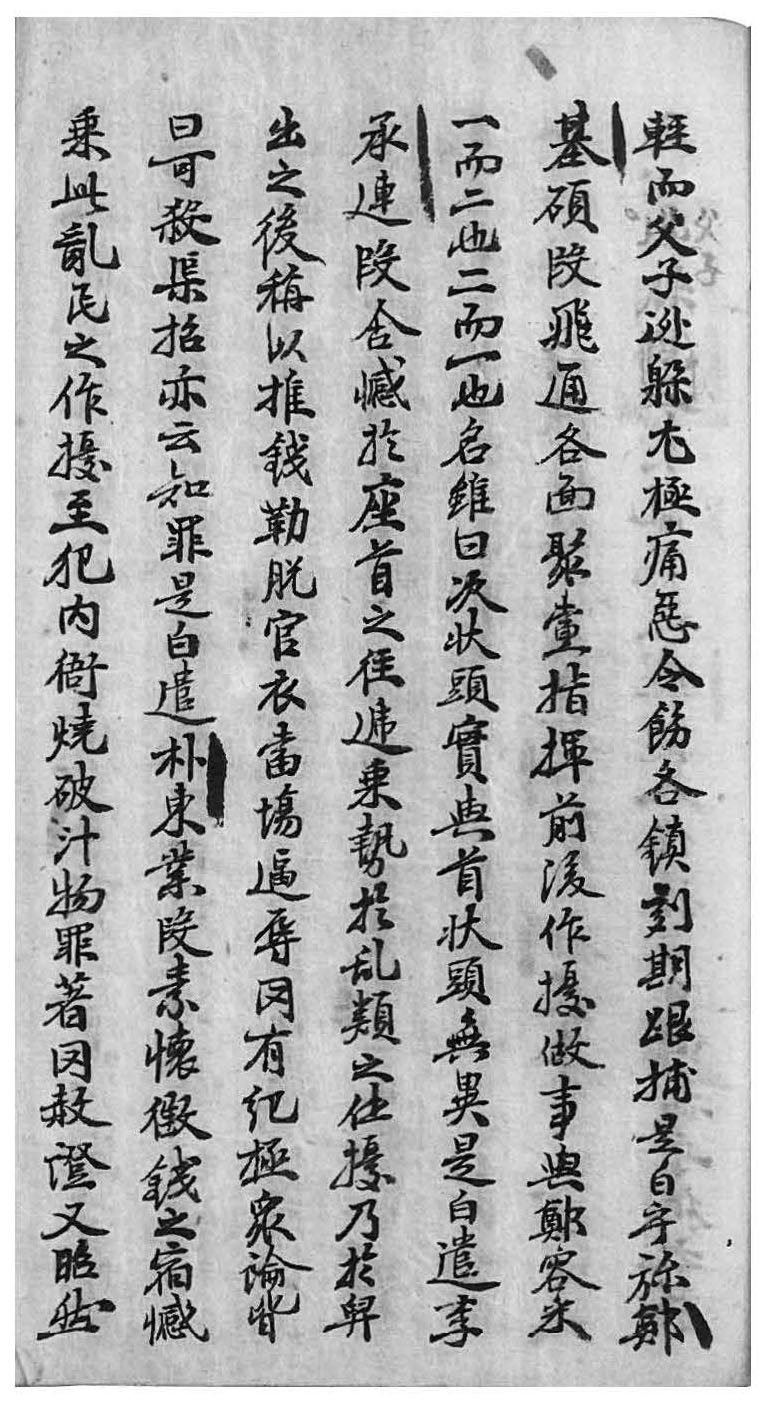 輕而父子迯躱尤極痛惡令飭各鎭刻期跟捕是白乎㫆鄭
基碩段飛通各面聚黨指揮前後作擾做事與鄭客朱
一而二也二而一也名雖曰次狀頭實與首狀頭無異是白遣李
承連段含憾於座首之徃遞乘勢於亂類之作擾乃於舁
出之後稱以推錢勒脫官衣當塲逼辱罔有紀極衆論皆
曰可殺渠招亦云知罪是白遣朴東業段素懷徵錢之宿憾
乗此亂民之作擾至犯內衙燒破汁物罪著罔赦證又昭然
父子